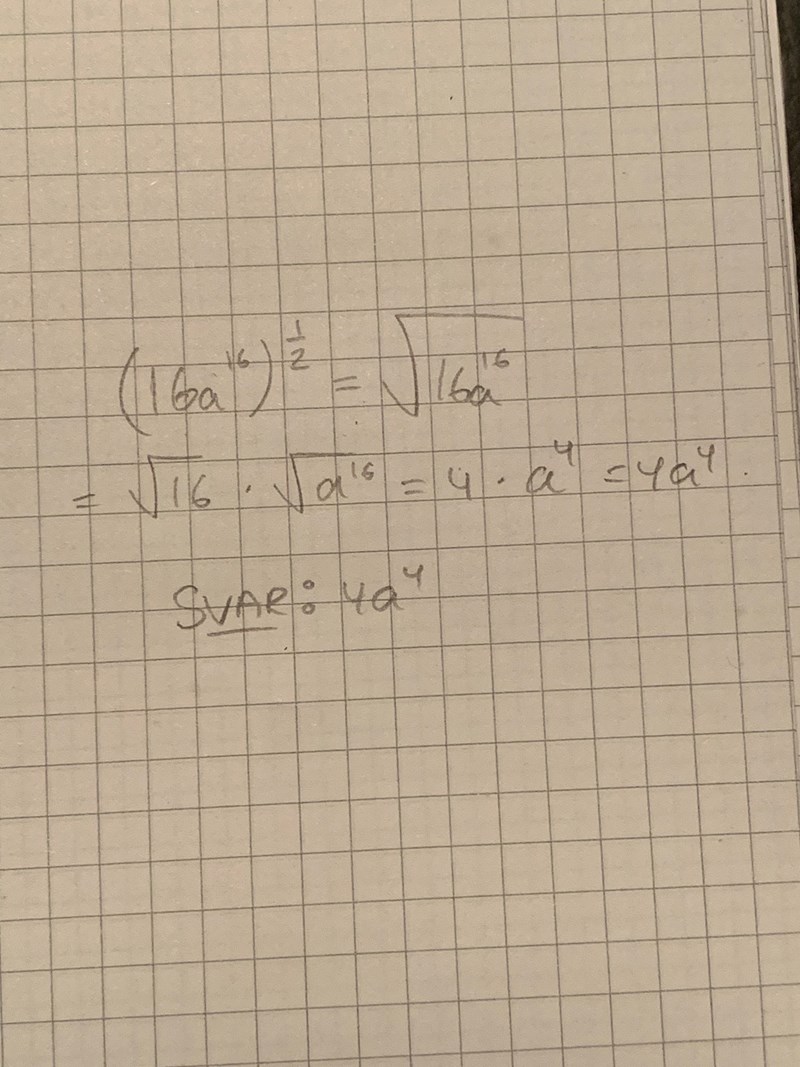 (16a¹⁶)^½ = √16a¹⁶
= √16 · √a¹⁶ = 4 · a⁴ = 4a⁴.
SVAR: 4a⁴